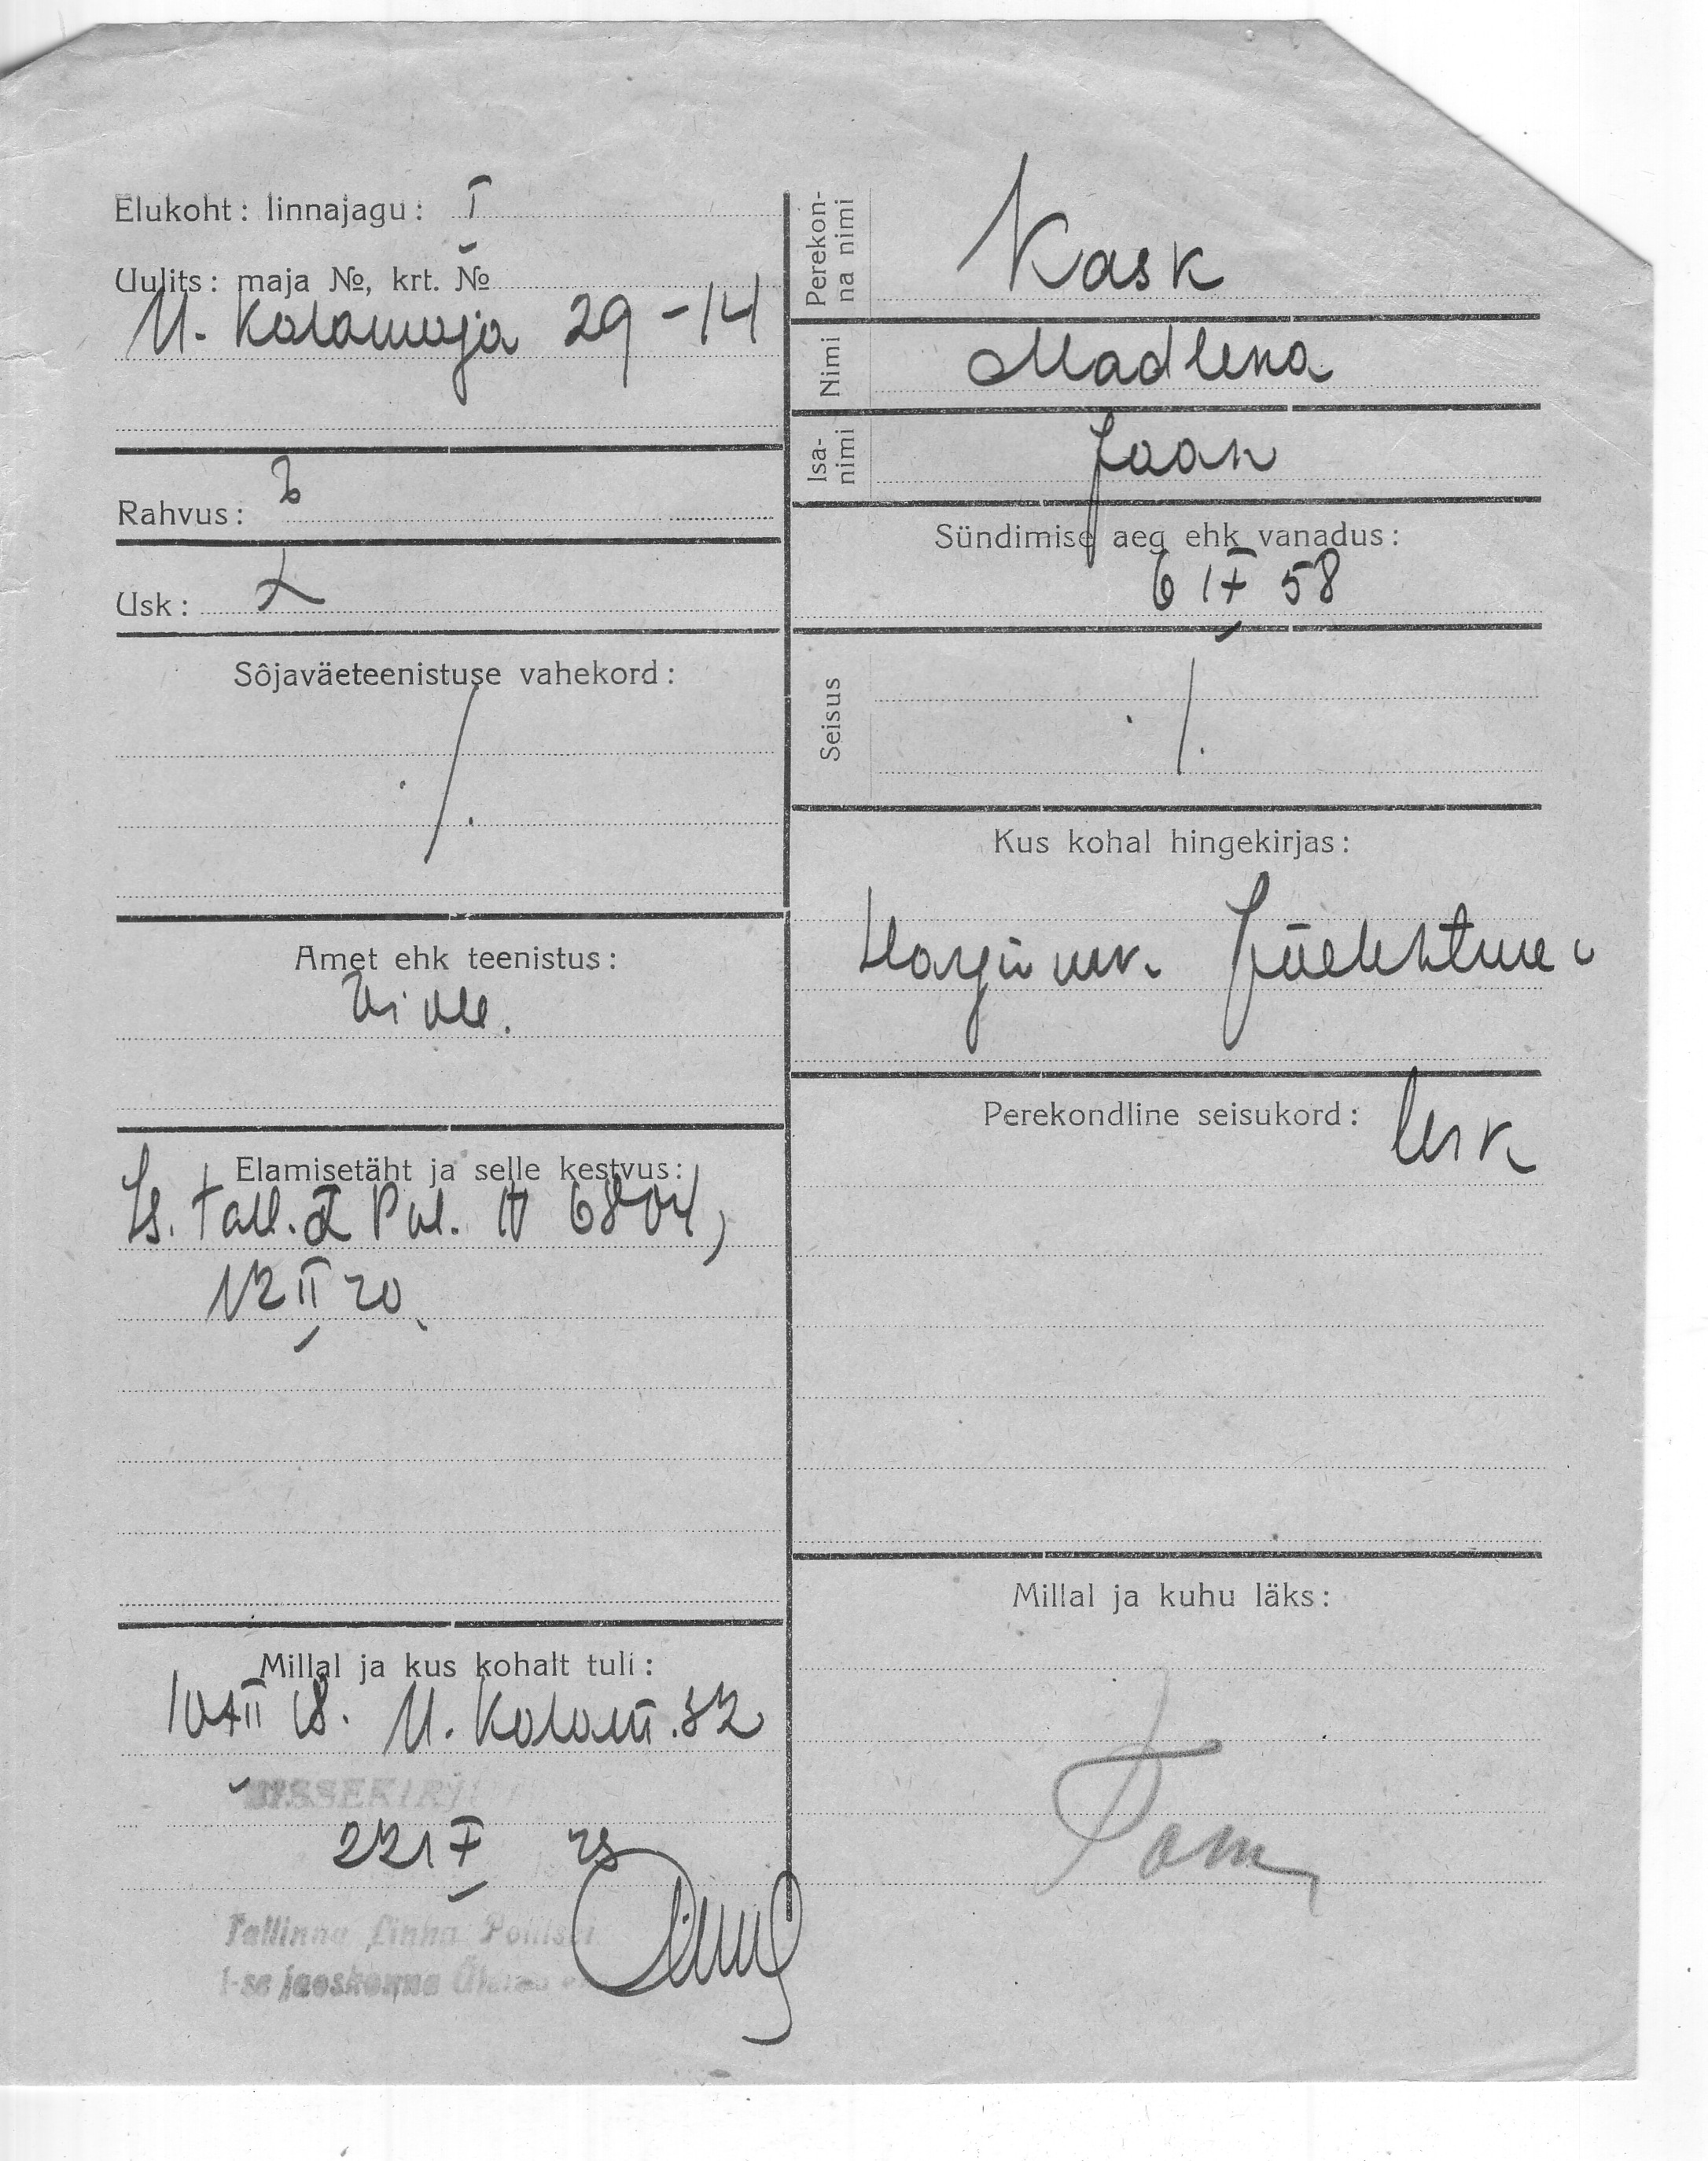 Elukoht: linnajagu: I
Uulits: maja №, krt. №
U. Kalamaja 29-14
Rahvus: E
Usk: L
Sôjaväeteenistuse vahekord:
./.
Amet ehk teenistus:
Elamisetäht ja selle kestvus:
Is. Tall. I Pol. № 6804,
12 II 20.
Millal ja kus kohalt tuli:
10 XII 18. U. Kalam. 32
SISSEKIRJ
22 IX 23
Tallinna Linna Politsei
1-se jaoskonna Ülema
Perekonna nimi
Kask
Nimi
Madlena
Isanimi
Jaan
Sündimise aeg ehk vanadus:
6 IX 58
Seisus
./.
Kus kohal hingekirjas:
Harju Jõelehtme v
Perekondline seisukord: lesk
Millal ja kuhu läks: